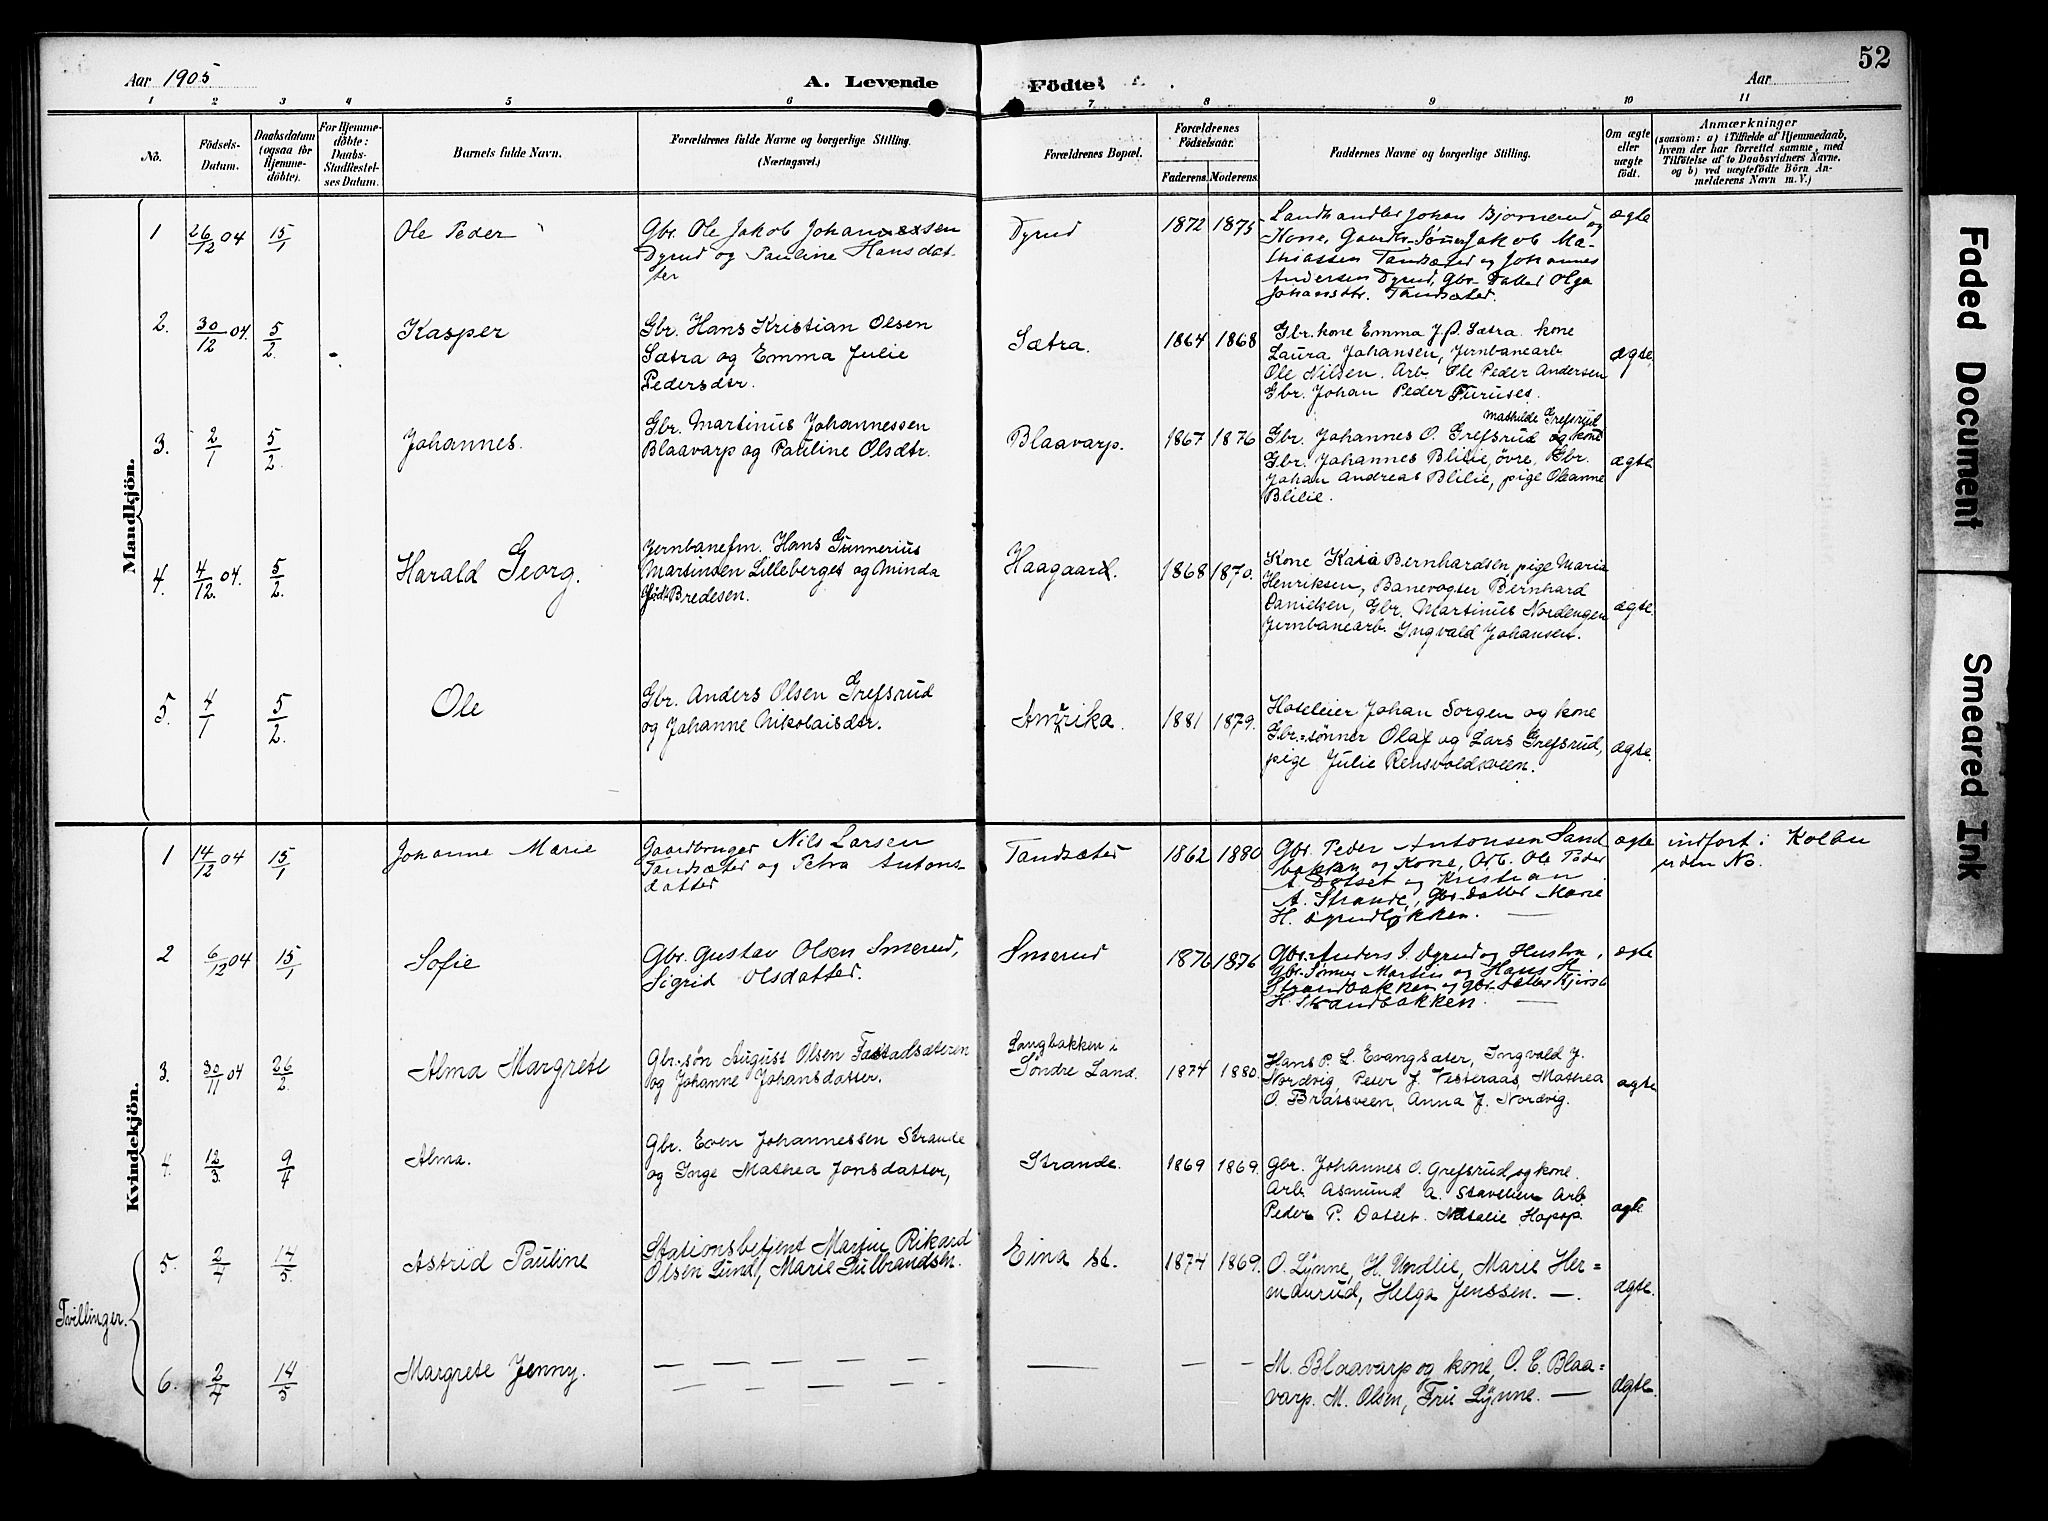 52
Aar 1905
A. Levende
Födte.
Aar
1 2 3 4 5 6 7 8 9 10 11
No.
Födsels-
Datum.
Daabsdatum
(ogsaa for
Hjemme-
döbte).
For Hjemme-
döbte:
Daabs-
Stadfæstel-
ses Datum.
Barnets fulde Navn.
Forældrenes fulde Navne og borgerlige Stilling.
(Næringsvei.)
Forældrenes Bopæl.
Forældrenes
Födselsaar.
Faderens. Moderens.
Faddernes Navne og borgerlige Stilling.
Om ægte
eller
uægte
födt.
Anmærkninger
(saasom: a) i Tilfælde af Hjemmedaab,
hvem der har forrettet samme, med
Tilföielse af to Daabsvidners Navne.
og b) ved uægtefödte Börn An-
melderens Navn m. V.)
Mandkjön.
1 26/12 04 15/1 Ole Peder
Gbr. Ole Jakob Johannessen
Dyrud og Pauline Hansdat-
ter
Dyrud 1872 1875
Landhandler Johan Bjørnerud og
Kone, Gaardbr-Sønner Jakob Ma-
thiassen Tandsæter og Johannes
Andersen Dyrud, Gbr-Datter Olga
Johansdtr. Tandsæter.
ægte
2. 30/12 04. 5/2. Kasper
Gbr. Hans Kristian Olsen
Sætra og Emma Julie
Pedersdtr.
Sætra. 1864 1868
Gbr. kone Emma J. P. Sætra. kone
Laura Johansen, Jernbanearb.
Ole Nilsen. Arb. Ole Peder Andersen
Gbr. Johan Peder Furuses.
ægte.
3. 2/1 5/2. Johannes.
Gbr. Martinus Johannessen
Blaavarp og Pauline Olsdtr.
Blaavarp. 1867 1876
Mathilde Grefsrud
Gbr. Johannes O. Grefsrud og kone
Gbr. Johannes Blilie, øvre, Gbr.
Johan Andreas Blilie, pige Oleanne
Blilie.
ægte.
4. 4/12 04. 5/2. Harald Georg.
Jernbanefm. Hans Gunnerius
Martinsen Lilleberget og Minda
født Bredesen.
Haagaard. 1868 1870.
Kone Kaia Bernhardsen pige Maria
Henriksen, Banevogter Bernhard
Danielsen, Gbr. Martinus Nordengen
Jernbanearb. Ingvald Johansen.
ægte.
5. 4/1 5/2. Ole
Gbr. Anders Olsen Grefsrud
og Johanne Nikolaisdtr.
Amerika. 1881 1879.
Hoteleier Johan Sorgen og kone
Gbr.=sønner Olaf og Lars Grefsrud,
pige Julie Rensvoldsveen.
ægte.
Kvindekjön.
1 14/12 04 15/1 Johanne Marie
Gaardbruger Nils Larsen
Tandsæter og Petra Antons-
datter
Tandsæter 1862 1880
Gbr. Peder Antonsen Sand
bakken og Kone, Arb. Ole Peder
A. Dotset og Kristian
A. Strande, Gbr-datter Marie
H. Dyrudløkken. —
ægte
indført i Kolbu
uden No.
2 6/12 04 15/1 Sofie
Gbr. Gustav Olsen Smerud,
Sigrid Olsdatter.
Smerud 1876 1876
Gbr. Anders I. Dyrud og Hustru,
Gbr. Sønner Martin og Hans H.
Strandbakken og Gbr-datter
H. Strandbakken. —
ægte
3. 30/11 04 26/2. Alma Margrete
Gbr-søn August Olsen Fastadsæteren
og Johanne Johansdatter.
Langbakken i
Søndre Land. 1874 1880.
Hans P. L. Evangsæter, Ingvald J.
Nordvig, Peter J. Vesteraas, Mathea
O. Bratsveen, Anna J. Nordvig.
ægte
4. 12/3. 9/4 Alma.
Gbr. Even Johannessen Strande
og Inge Mathea Jonsdatter,
Strande. 1869 1869.
Gbr. Johannes O. Grefsrud og kone.
Arb. Asmund A. Stavelien Arb.
Peder P. Dotset. Natalie
ægte.
Tvillinger.
5. 2/4 14/5. Astrid Pauline
Stationsbetjent Martin Rikard
Olsen Lund, Marie Gulbrandsen.
Eina st. 1874 1869.
O. Lÿnne, H. Vendlie, Marie Her=
manrud, Helga Jenssen. —.
ægte.
6. 2/4 14/5 Margrete Jenny.
— — — — —
— — — — —
— — —
M. Blaavarp og kone, O. E. Blaa=
varp. M. Olsen, Fru Lÿnne. —
ægte.
Faded Document
Smeared Ink